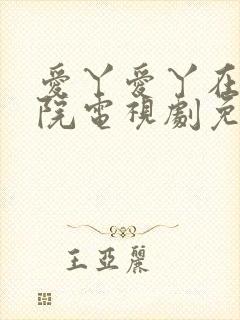 愛丫愛丫在
院電視劇免
王亞麗